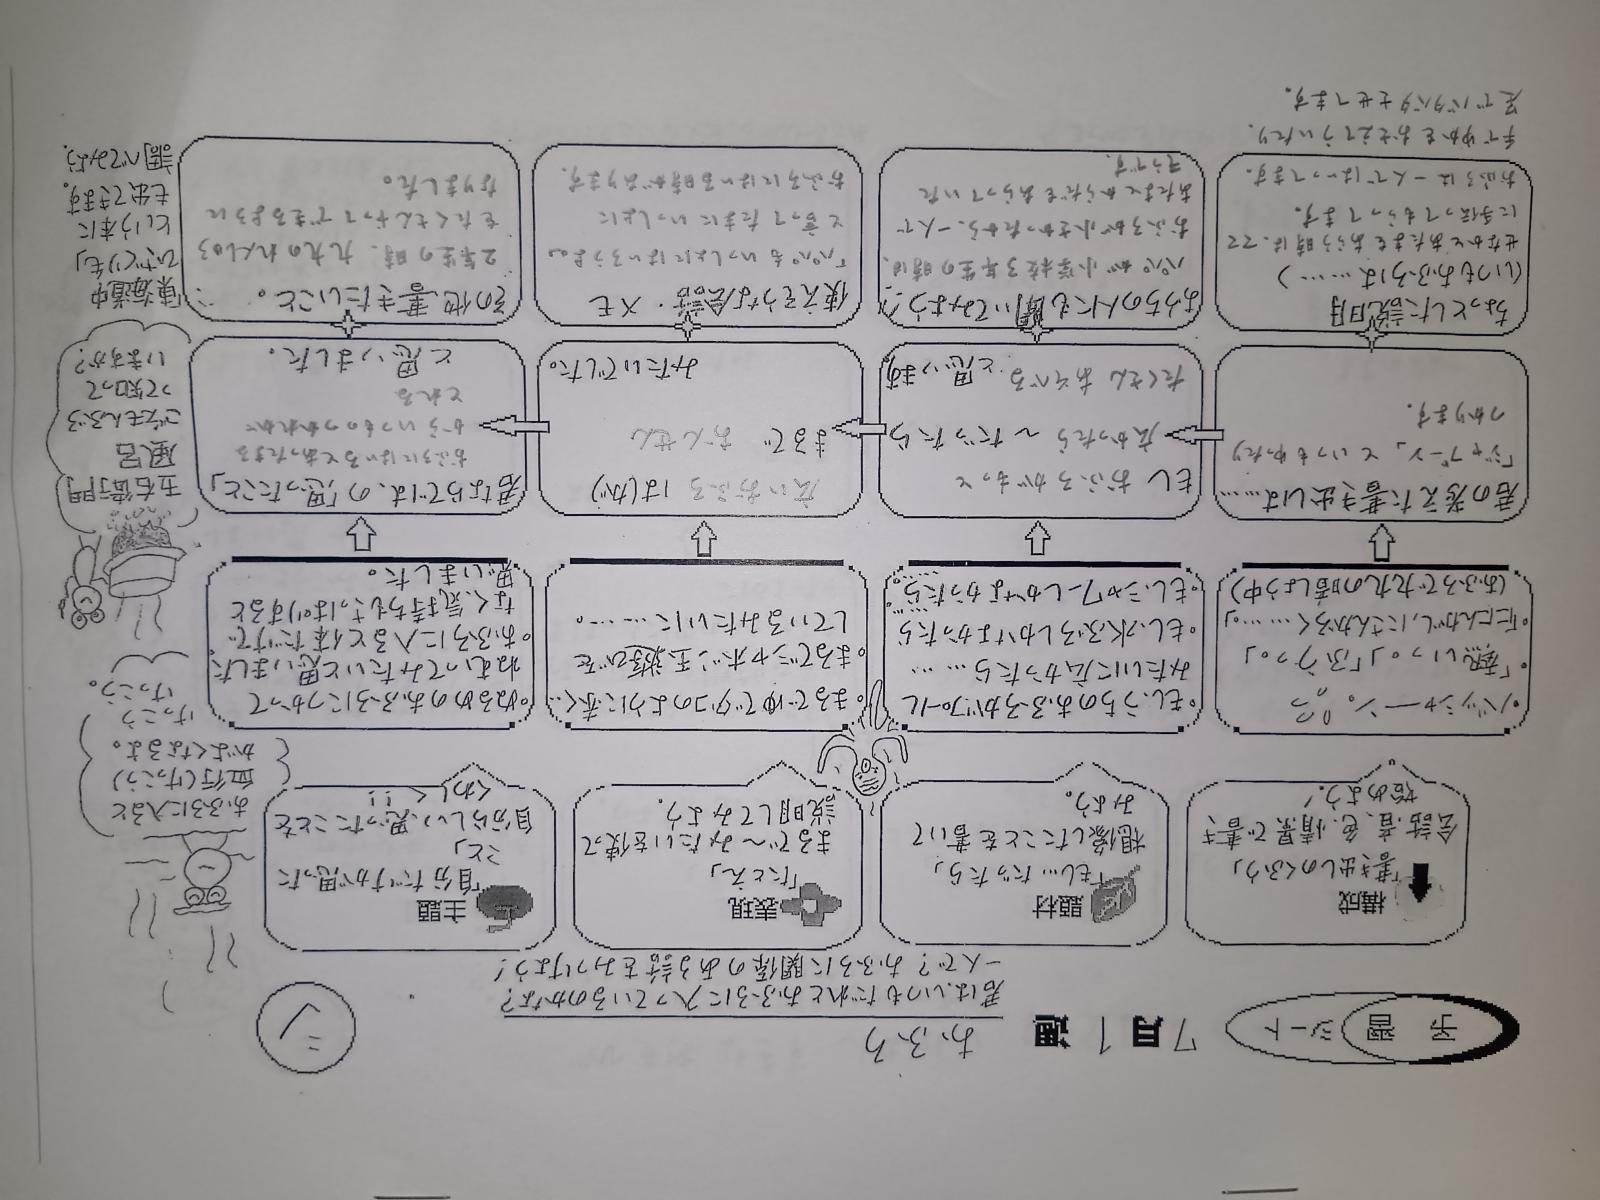 予習シート
7月1週
おふろ
ミシ
君は、いつもだれとおふろに入っているのかな?
一人で?おふろに関係のある話をみつけよう!
構成
「書き出しのくふう」
会話、音、色、情景で書き
始めよう!
題材
「もし…だったら」
想像したことを書いて
みよう。
表現
「たとえ」
まるで〜みたいを使って
説明してみよう。
主題
「自分だけが思った
こと」
自分らしい、思ったことを
くわしく!!
おふろに入ると
血行(けっこう)
がよくなるよ。
けっこう
けっこう。
・バッシャーン。
・「熱いっ。」「ふうっ。」
・「ににんがし、にさんがろく……」。
(おふろで九九の暗しょう中)
・もし、うちのおふろがプール
みたいに広かったら……
・もし、水ぶろしかなかったら
……
・もし、シャワーしかなかったら……
・まるでゆでダコのように赤く…
・まるでシャボン玉遊びを
しているみたいに……。
・ぬるめのおふろにつかって
ねむってみたいと思いました
・おふろに入ると体だけで
なく、気持ちもさっぱりすると
思いました。
君の考えた書き出しは……
「ジャブーン」といつもゆったり
つかります。
もし おふろがもっと
広かったら 〜だったら
たくさんあそべる と思います。
広いおふろは(が)
まるで おんせん
みたいでした。
君ならでは、の「思ったこと」
おふろにはいるとあったまる
から いつものつかれが
とれる
と思いました。
五右衛門
風呂
ごえもんぶろ
って知って
いますか?
「東海道中
ひざくりも」
という本に
も出てきます。
調べてみよう。
ちょっとした説明
(いつもおふろは……)
せなかとあたまをあらう時は、てて
に手伝ってもらってます。
おふろは一人ではいってます。
手でゆかをおさえてういたり、
足でバタバタさせてます。
おうちの人にも聞いてみよう!
パパが小学校3年生の時は、
おふろが小さかったから、一人で
あたまとからだをあらっていた
そうです。
使えそうな会話・メモ
「パパもいっしょにはいろうよ。」
と言ってたまにいっしょに
おふろにはいる時があります。
その他、書きたいこと。
2年生の時、九九のれんしゅう
をたくさんやってできるように
なりました。